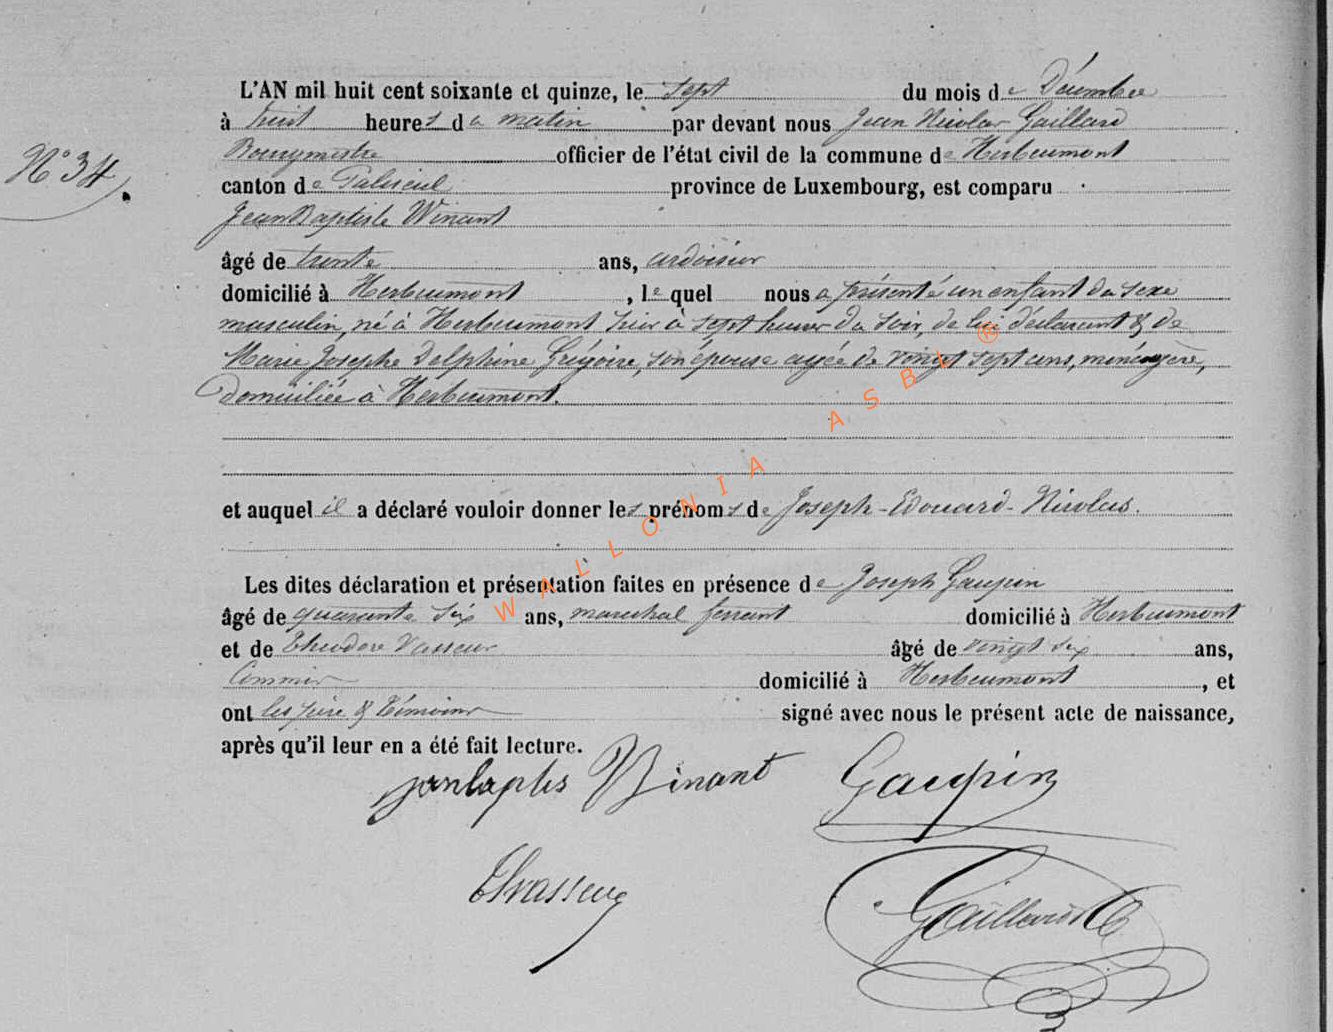 L'AN mil huit cent soixante et quinze, le sept du mois de Décembre
à huit heures du matin par devant nous Jean Nicolas Gaillard
N° 34.
Bourgmestre officier de l'état civil de la commune de Herbeumont
canton de Paliseul province de Luxembourg, est comparu
Jean Baptiste Winant
âgé de trente ans, ardoisier
domicilié à Herbeumont, le quel nous a présenté un enfant du sexe
masculin, né à Herbeumont hier à sept heures du soir, de lui déclarant & de
Marie Josephe Delphine Grégoire, son épouse agée de vingt sept ans, ménagère,
domiciliée à Herbeumont.
et auquel il a déclaré vouloir donner les prénoms de Joseph-Edouard-Nicolas.
Les dites déclaration et présentation faites en présence de Joseph Gaupin
âgé de quarante six ans, marechal ferrant domicilié à Herbeumont
et de Théodore Vasseur âgé de vingt six ans,
Commis domicilié à Herbeumont, et
ont les père & témoins signé avec nous le présent acte de naissance,
après qu'il leur en a été fait lecture.
Winant Gaupin
ThVasseur
Gaillard
WALLONIA ASBL ®